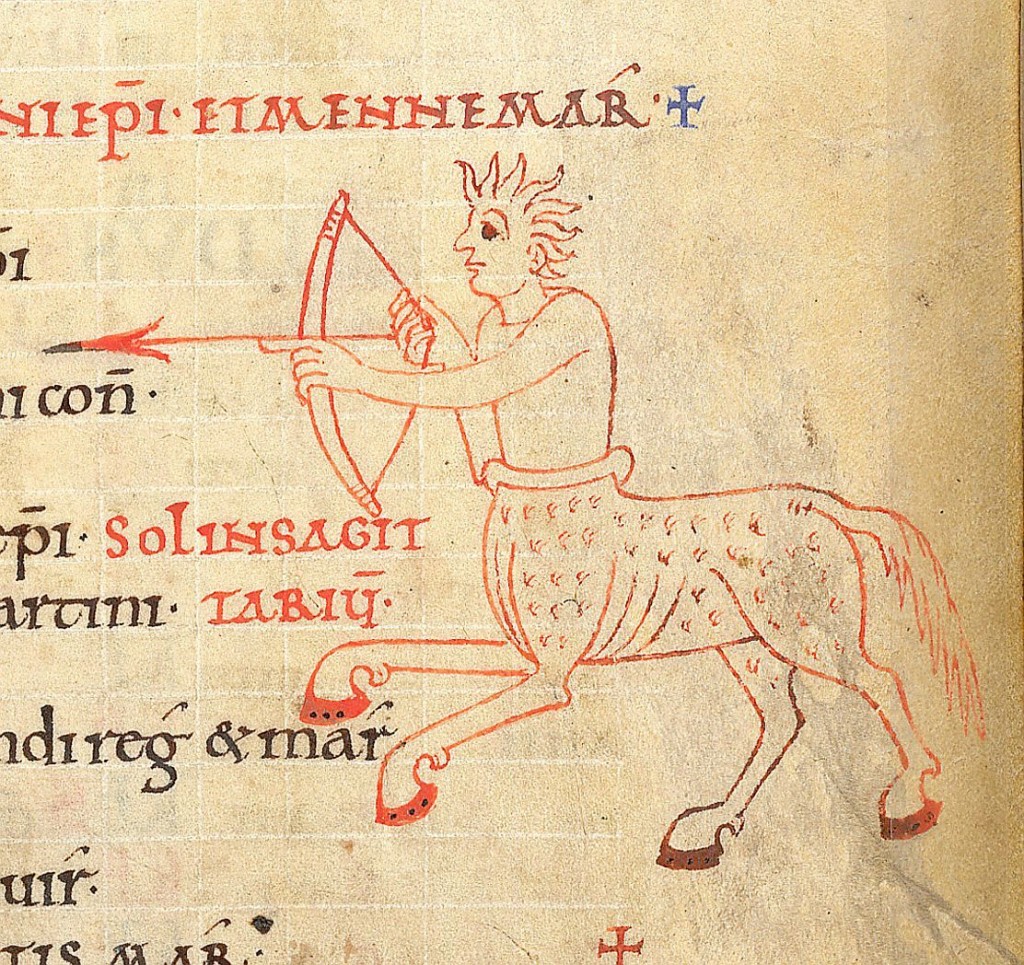 NI EP̄I· ET MENNE MAR̄· +
ni con̄·
ep̄i· SOL IN SAGIT
artini· TARIŪ·
ndi reḡ & mar̄
uir̄·
TIS MAR̄·
+